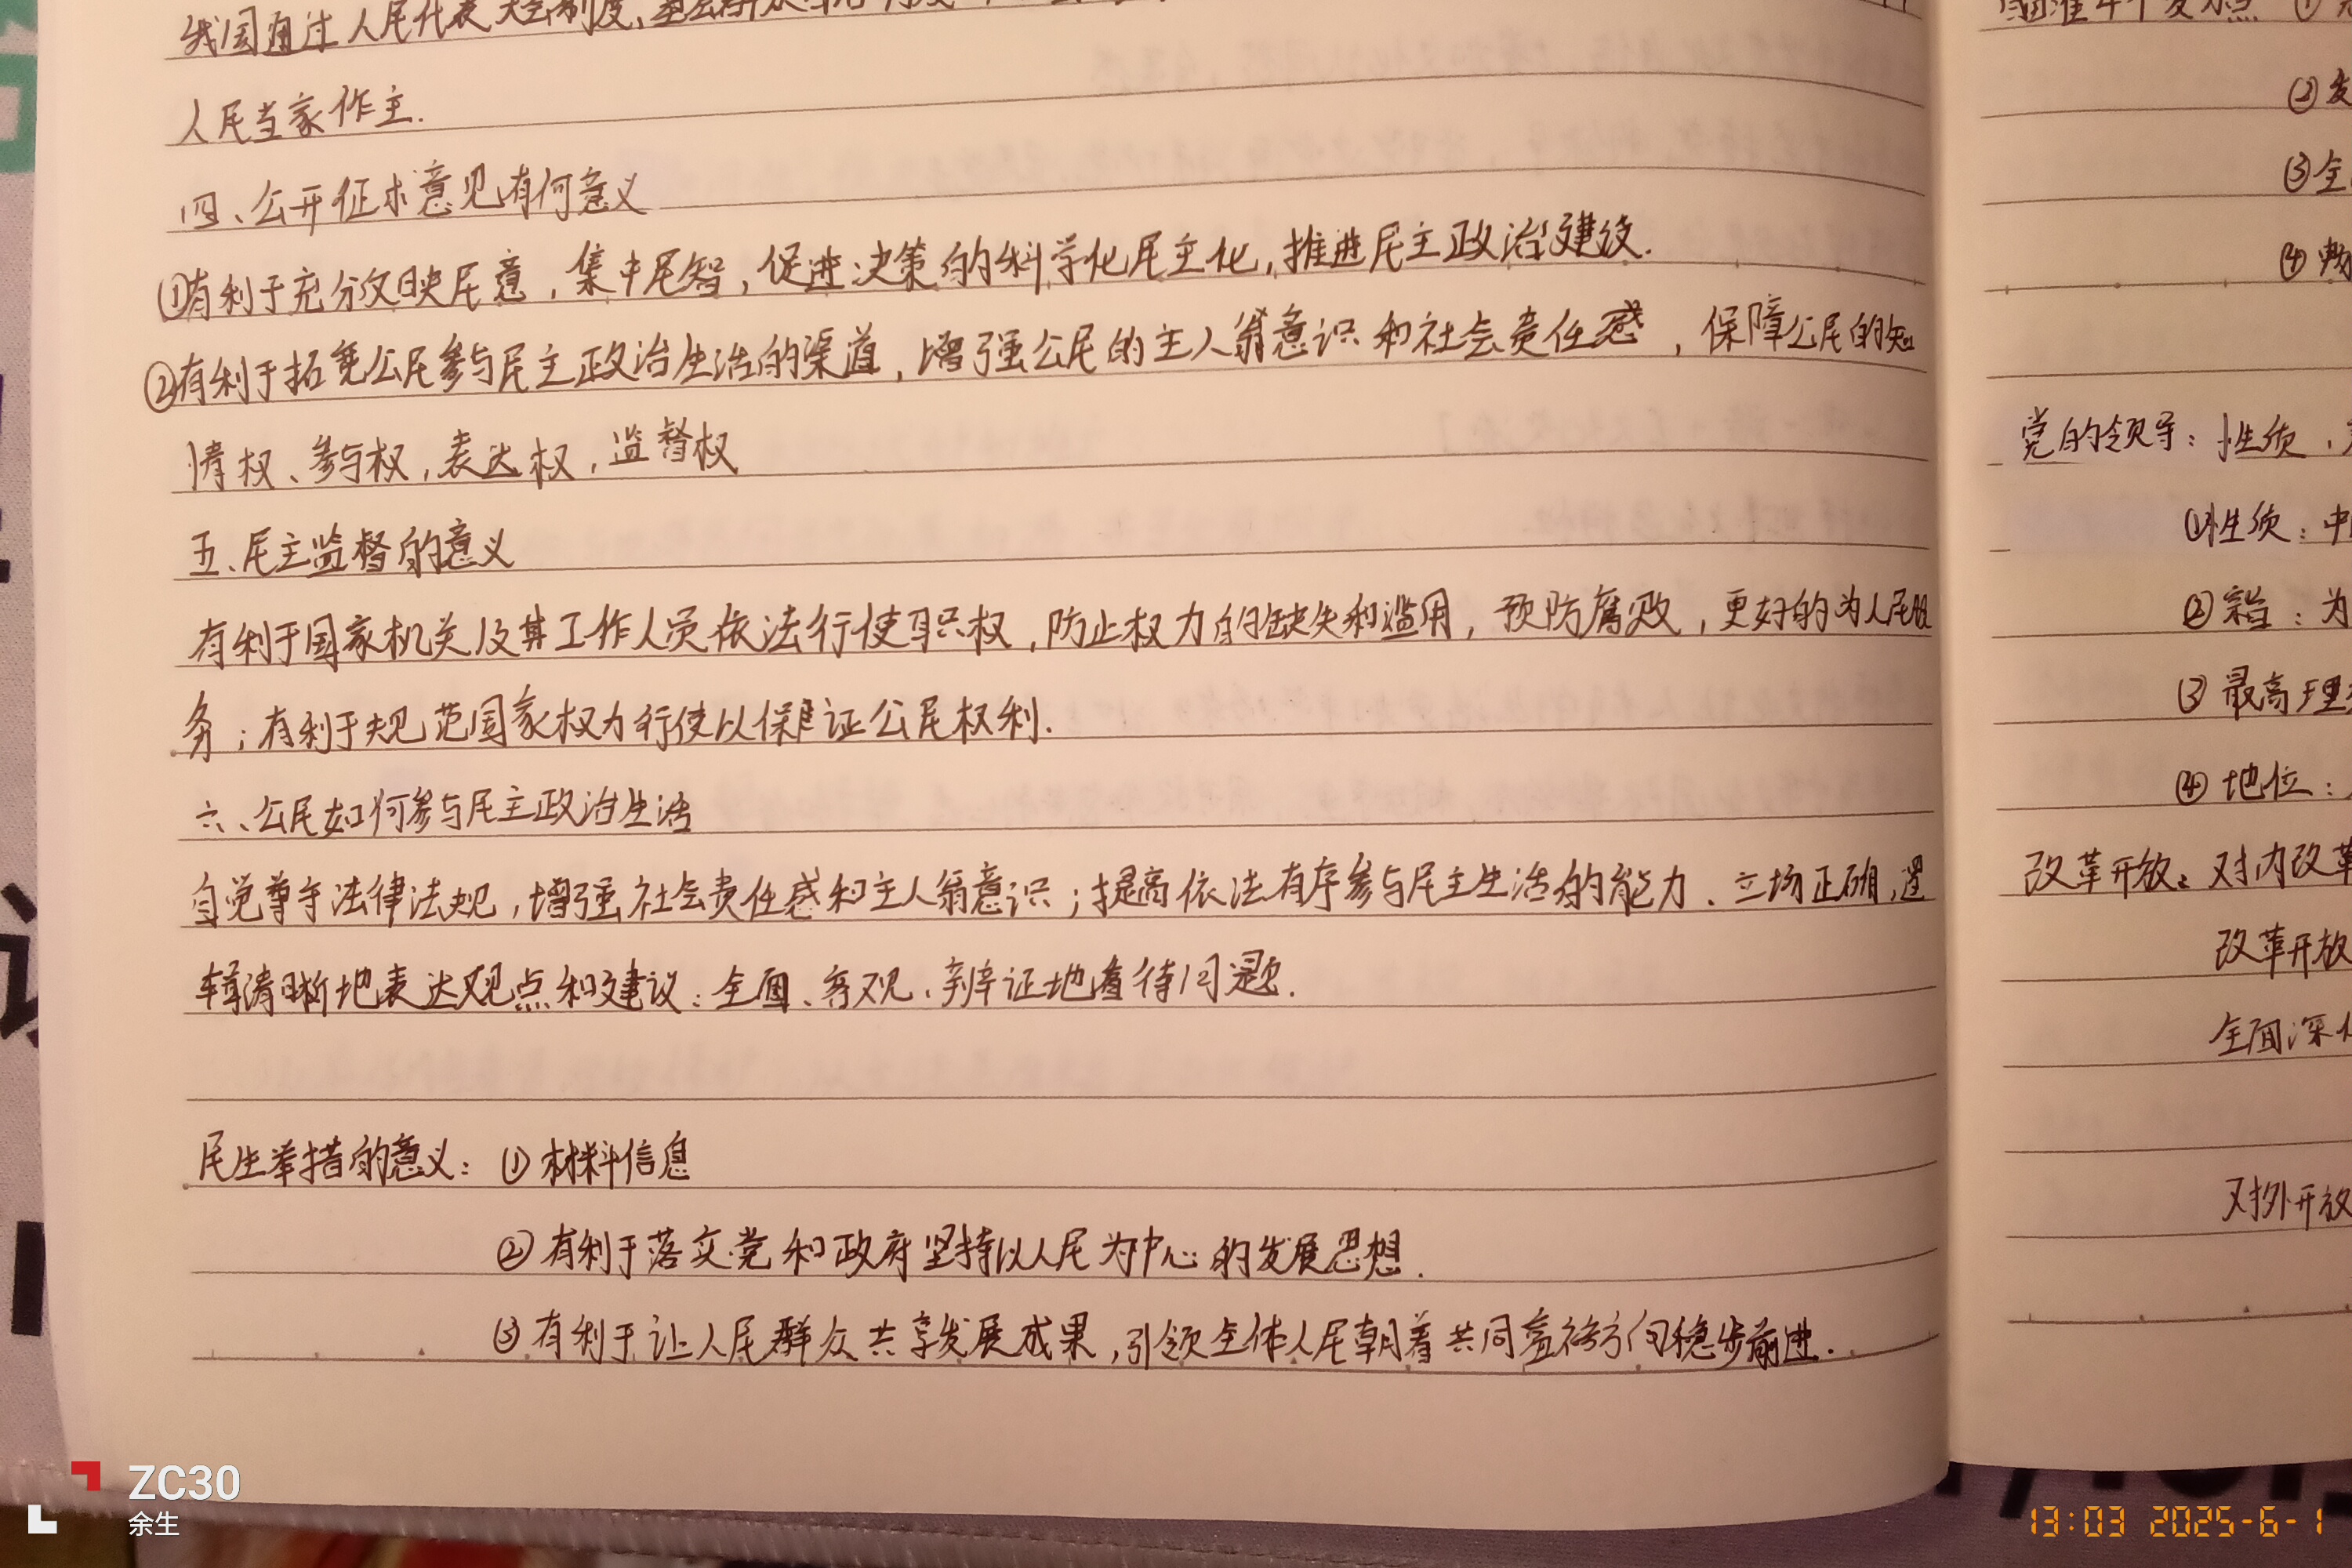 我国通过人民代表大会制度,基层群众自治制度
人民当家作主.
四、公开征求意见有何意义
①有利于充分反映民意,集中民智,促进决策的科学化民主化,推进民主政治建设.
②有利于拓宽公民参与民主政治生活的渠道,增强公民的主人翁意识和社会责任感,保障公民的知
情权、参与权,表达权,监督权
五、民主监督的意义
有利于国家机关及其工作人员依法行使职权,防止权力的缺失和滥用,预防腐败,更好的为人民服
务;有利于规范国家权力行使以保证公民权利.
六、公民如何参与民主政治生活
自觉尊守法律法规,增强社会责任感和主人翁意识;提高依法有序参与民主生活的能力.立场正确,逻
辑清晰地表达观点和建议;全面、客观、辨证地看待问题.
民生举措的意义:①材料信息
②有利于落实党和政府坚持以人民为中心的发展思想.
③有利于让人民群众共享发展成果,引领全体人民朝着共同富裕方向稳步前进.
②发
③全
党的领导:性质,
①性质:中
②宗旨:为
③最高理想
④地位:
改革开放:对内改革
改革开放
全面深化
对外开放
ZC30
余生
13:03 2025-6-1